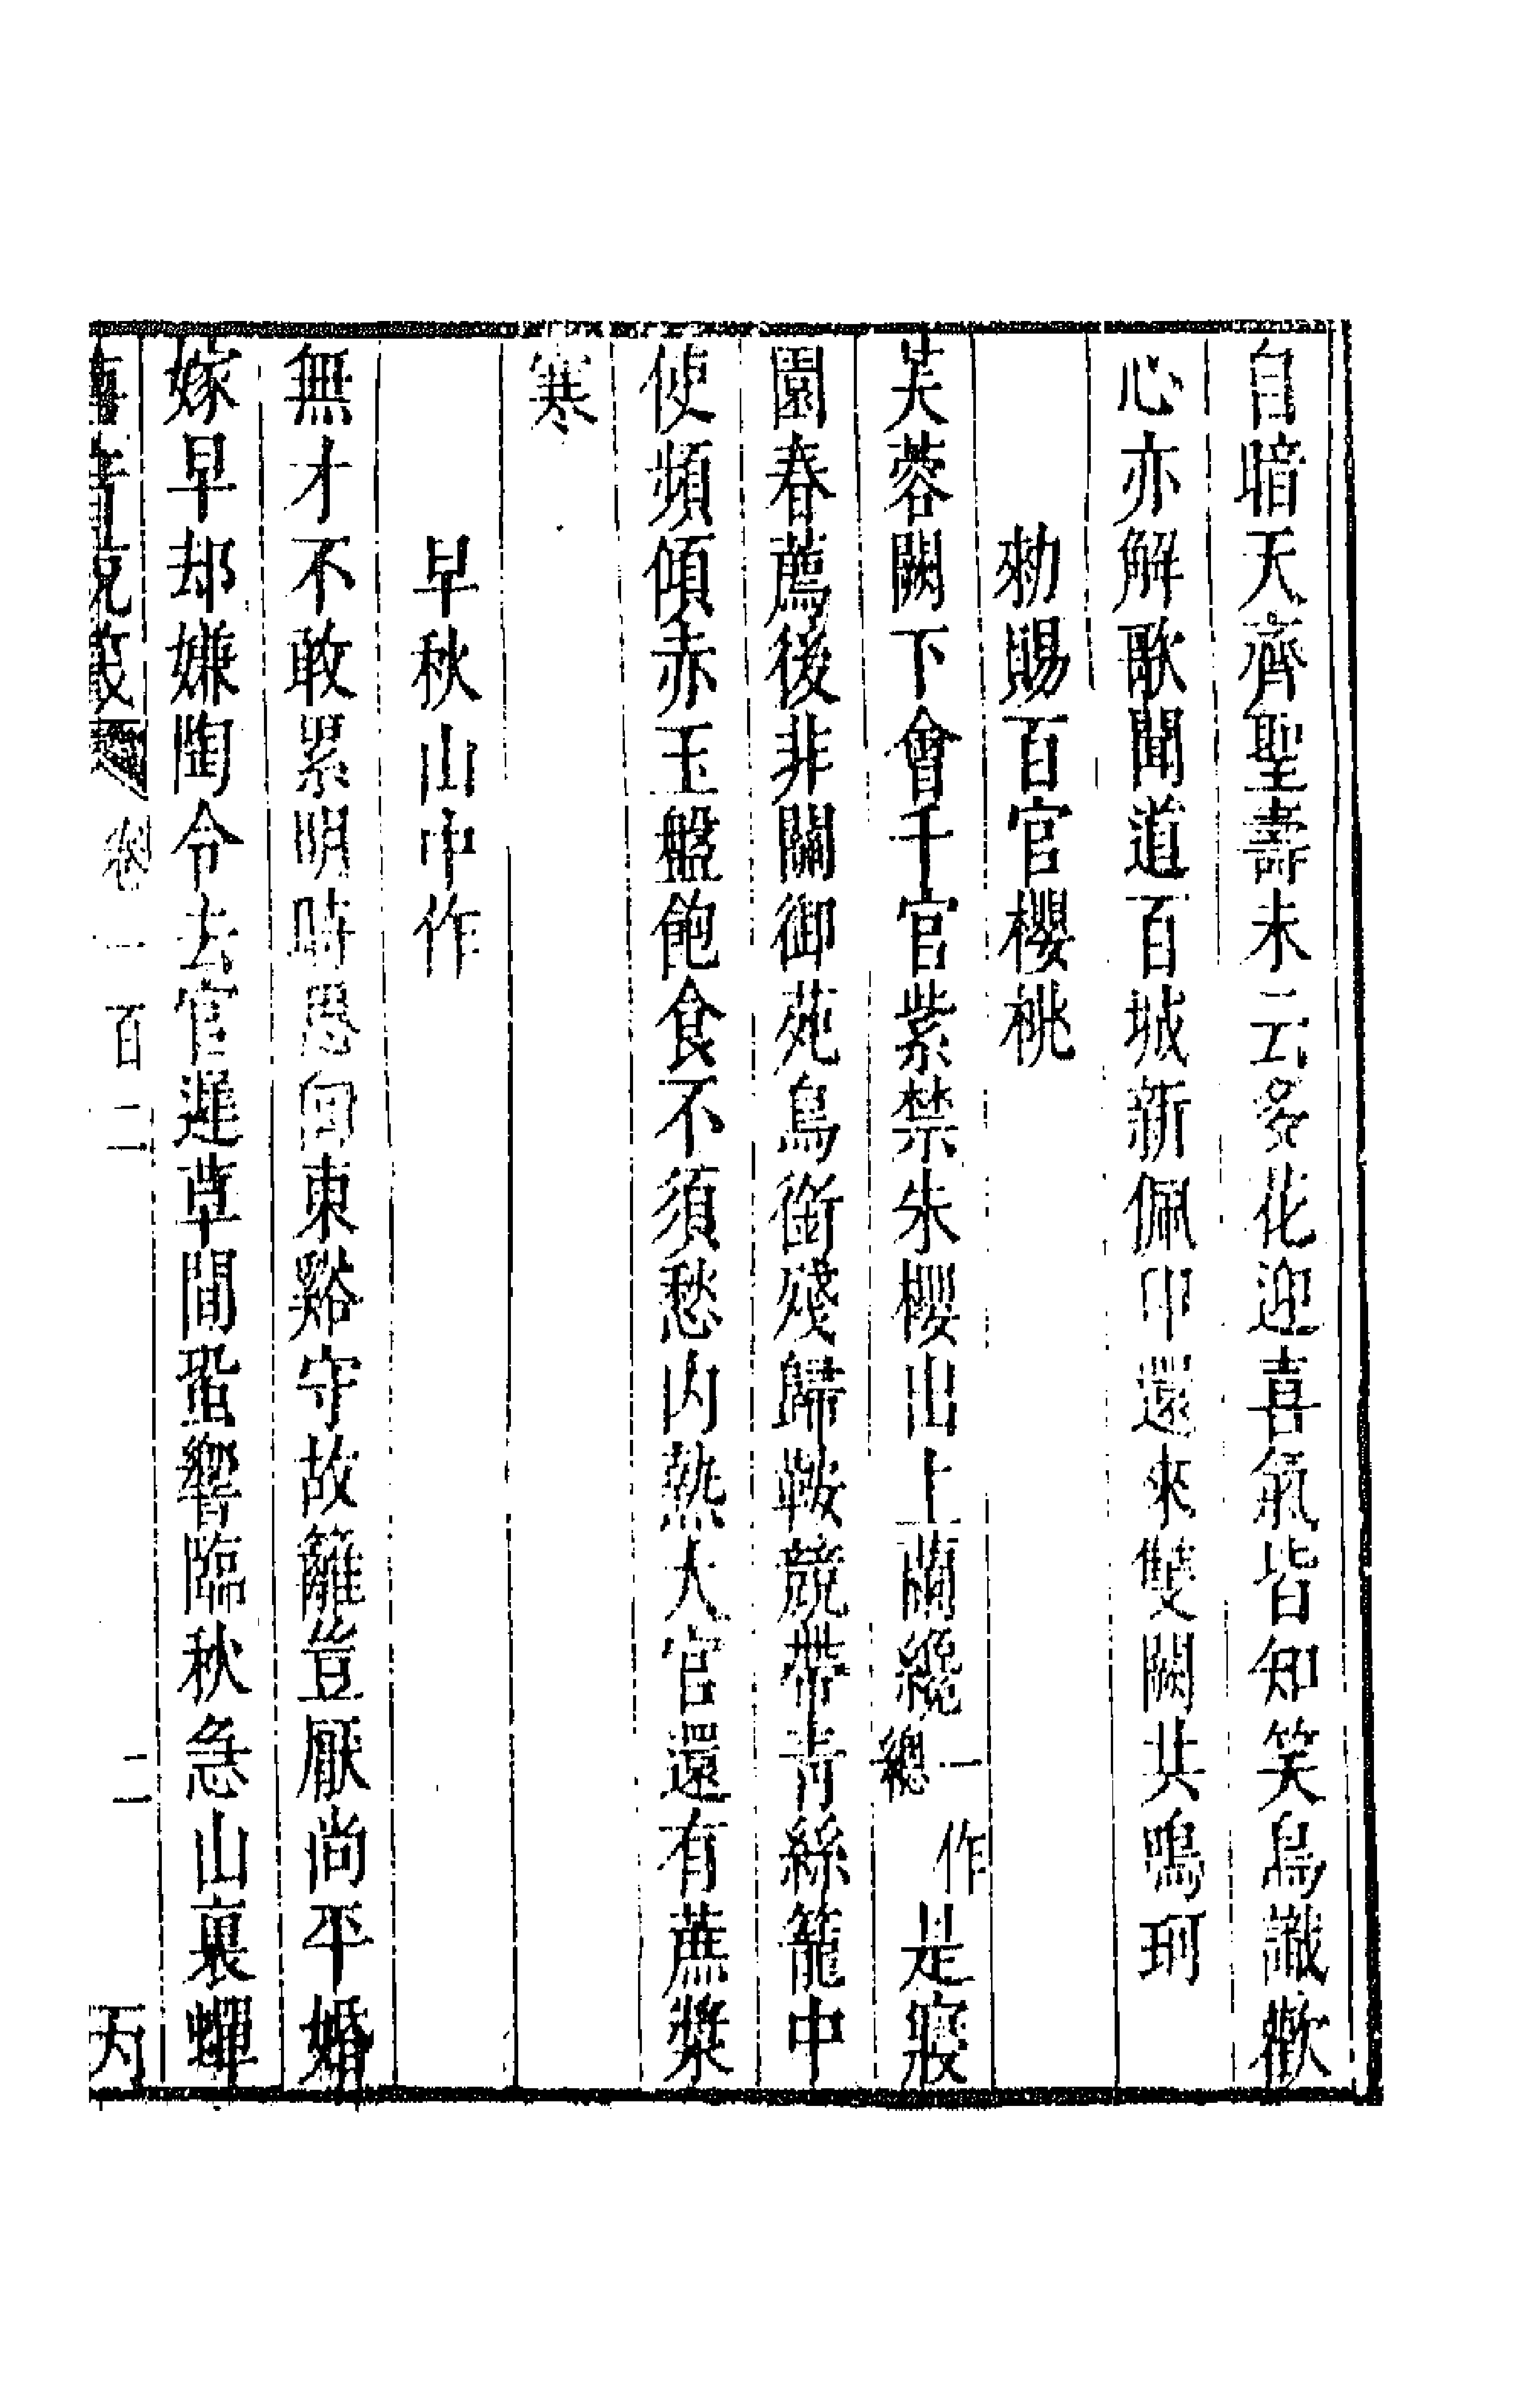 自暗天齊聖壽未云多花迎喜氣皆知笑鳥識歡
心亦解歌聞道百城新佩印還來雙闕共鳴珂
勑賜百官櫻桃
芙蓉闕下會千官紫禁朱櫻出上蘭纔一作總是寢
園春薦後非關御苑鳥銜殘歸鞍競帶青絲籠中
使頻傾赤玉盤飽食不須愁內熱大官還有蔗漿
寒
早秋山中作
無才不敢累明時思向東谿守故籬豈厭尚平婚
嫁早却嫌陶令去官遲草間蛩響臨秋急山裏蟬
卷一百二 二 丙